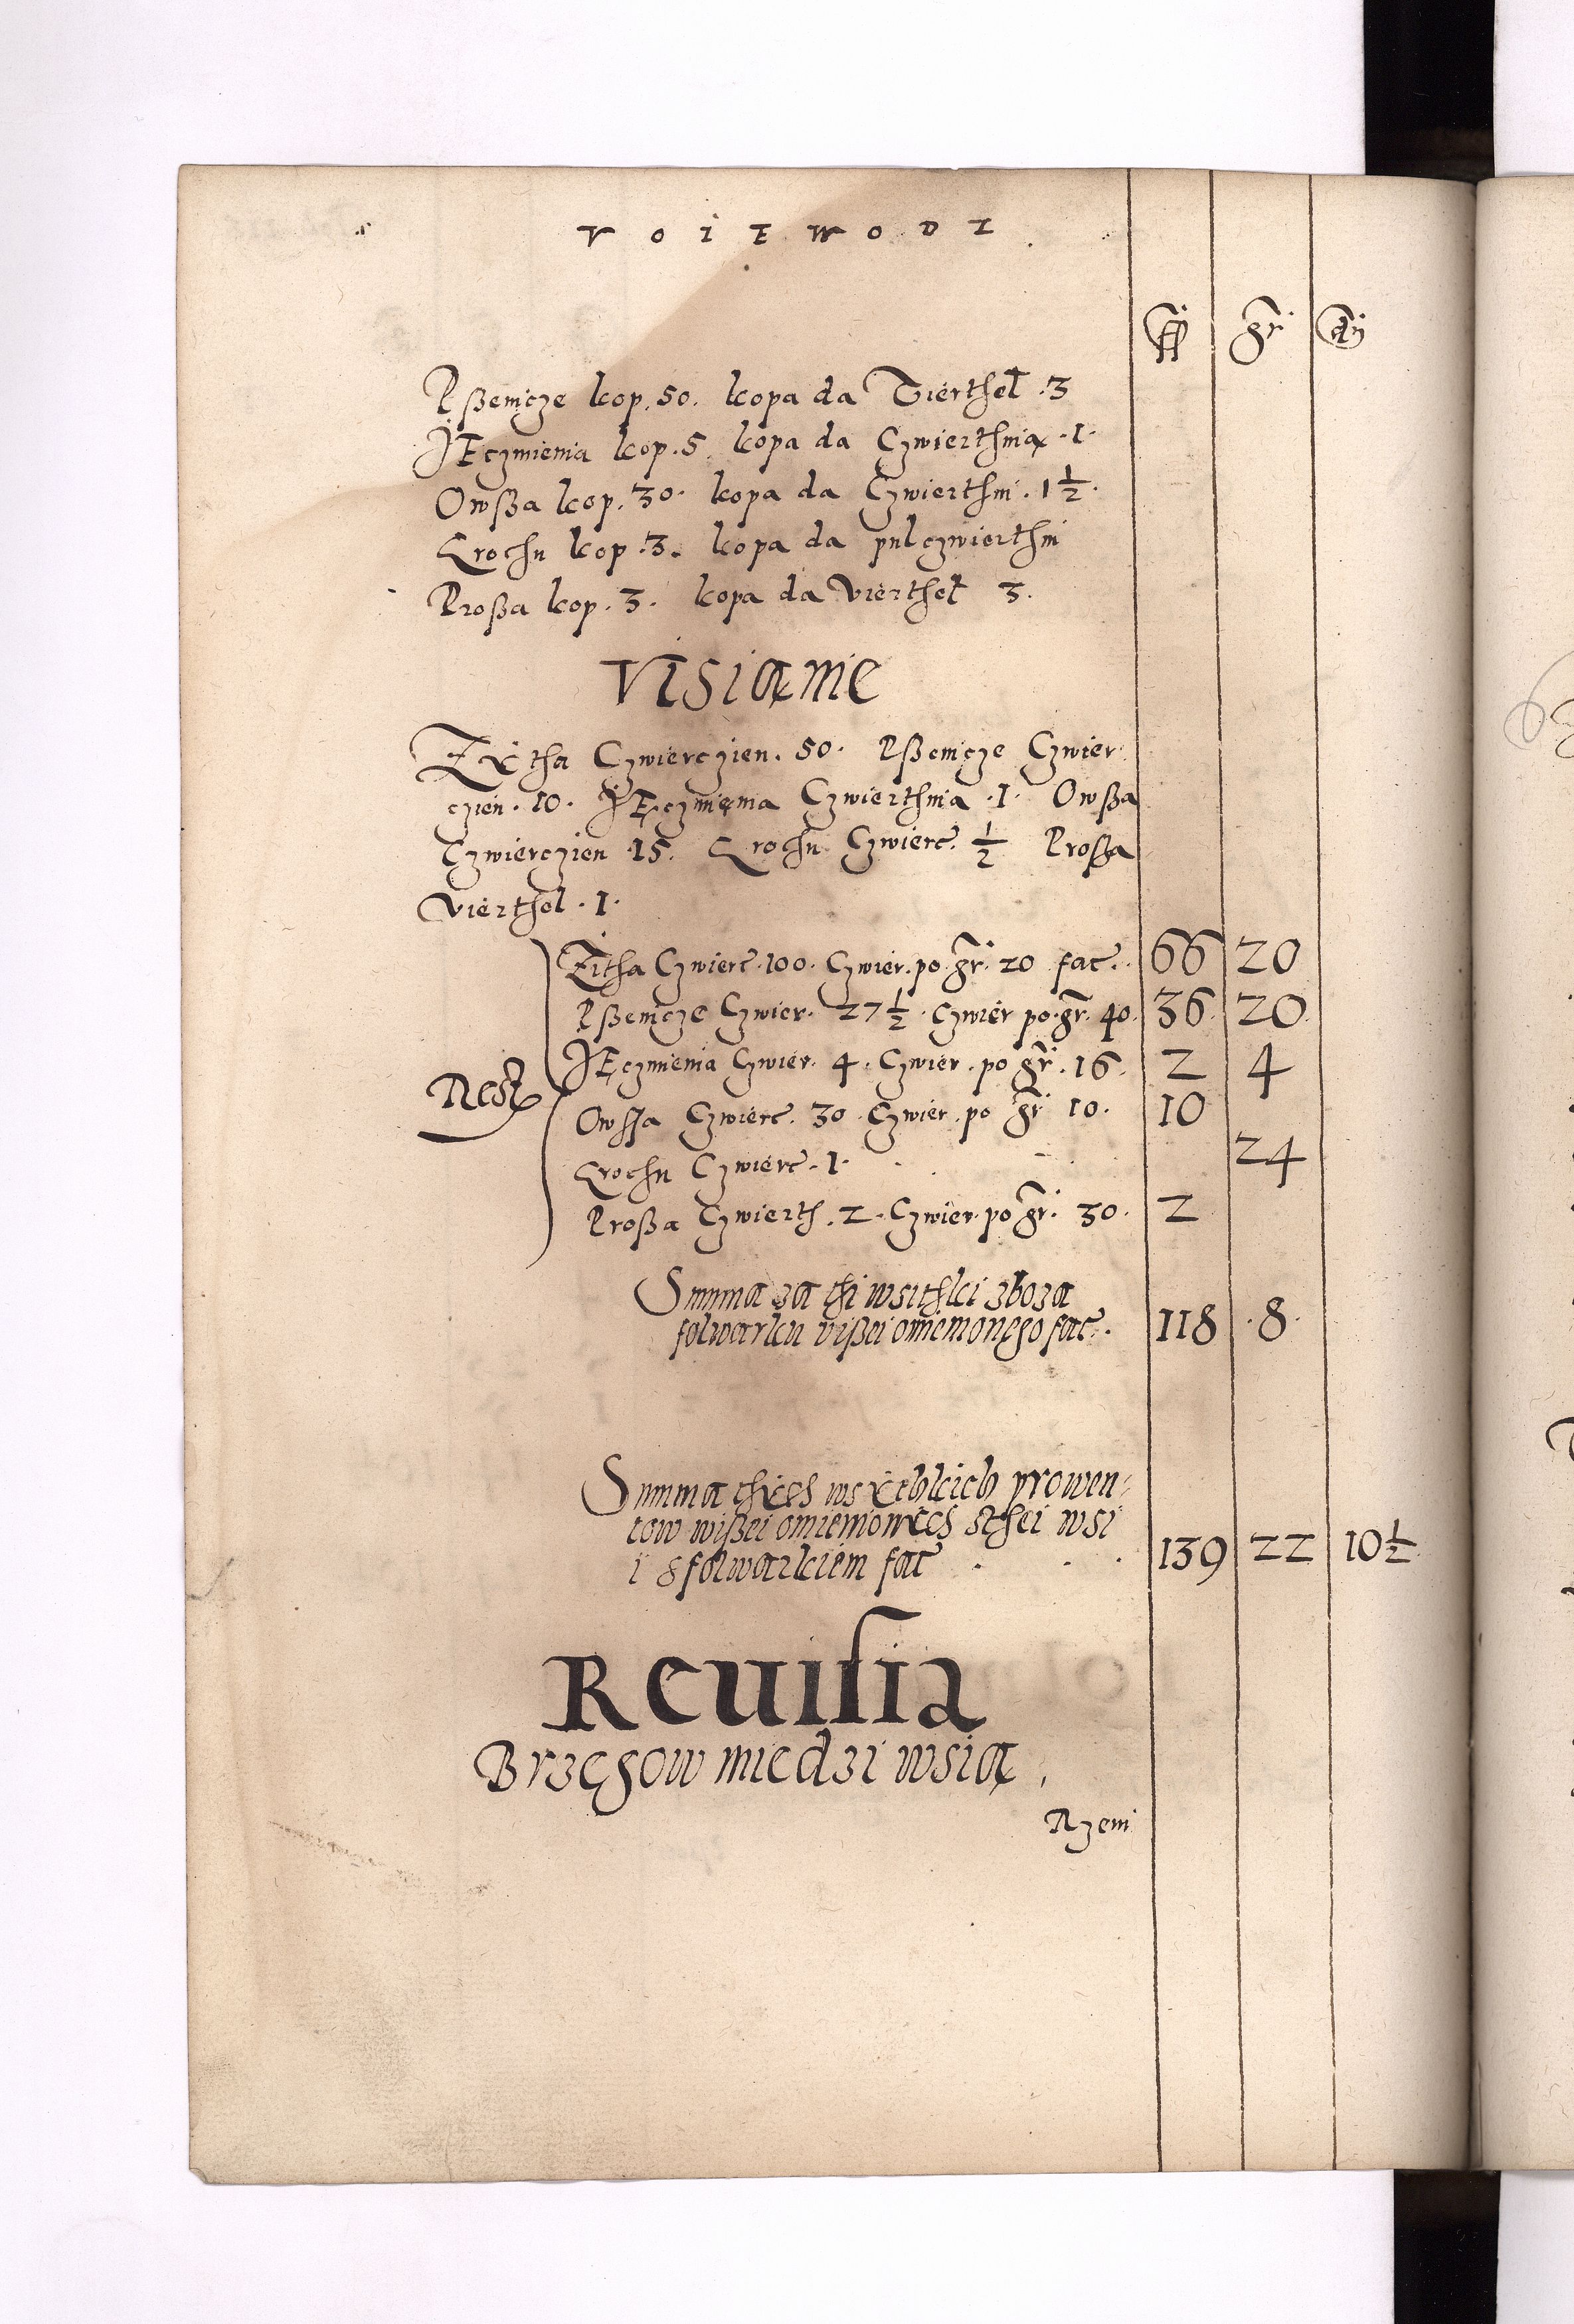 VOIEWODZ
fl gr d
Pßenicze kop. 50. kopa da Vierthel. 3
JEczmienia kop. 5. kopa da Czwierthnią. 1.
Owßa kop. 30. kopa da Czwierthni. 1 1/2.
Grochu kop. 3. kopa da pulczwierthni
Proßa kop. 3. kopa da Vierthel 3.
VISIANIE
Zÿtha Czwierczien. 50. Pßenicze Czwier
czien. 10. JEczmienia Czwierthnia. 1. Owßa
Czwierczien 15. Grochu Czwierc. 1/2 Proßa
Vierthel. 1.
Zitha Czwierc. 100. Czwier. po gr. 20 fac. 66 20
Pßenicze Czwier. 27 1/2. Czwier po gr. 40. 36 20
JEczmienia Czwier. 4. Czwier. po gr. 16. 2 4
Rest
Owssa Czwierc. 30. Czwier. po gr 10. 10
Grochu Czwierc. 1. 24
Proßa Czwierth. 2. Czwier. po gr. 30. 2
Summa za thi wsithki zboza
folwarku vißei omienionego fac. 118 8
Summa thÿch wsÿthkich prowen=
tow wißei omienionÿch sthei wsi
i sfolwarkiem fac 139 22 10 1/2
Reuisia
Brzegow miedzi wsią.
Rzeni